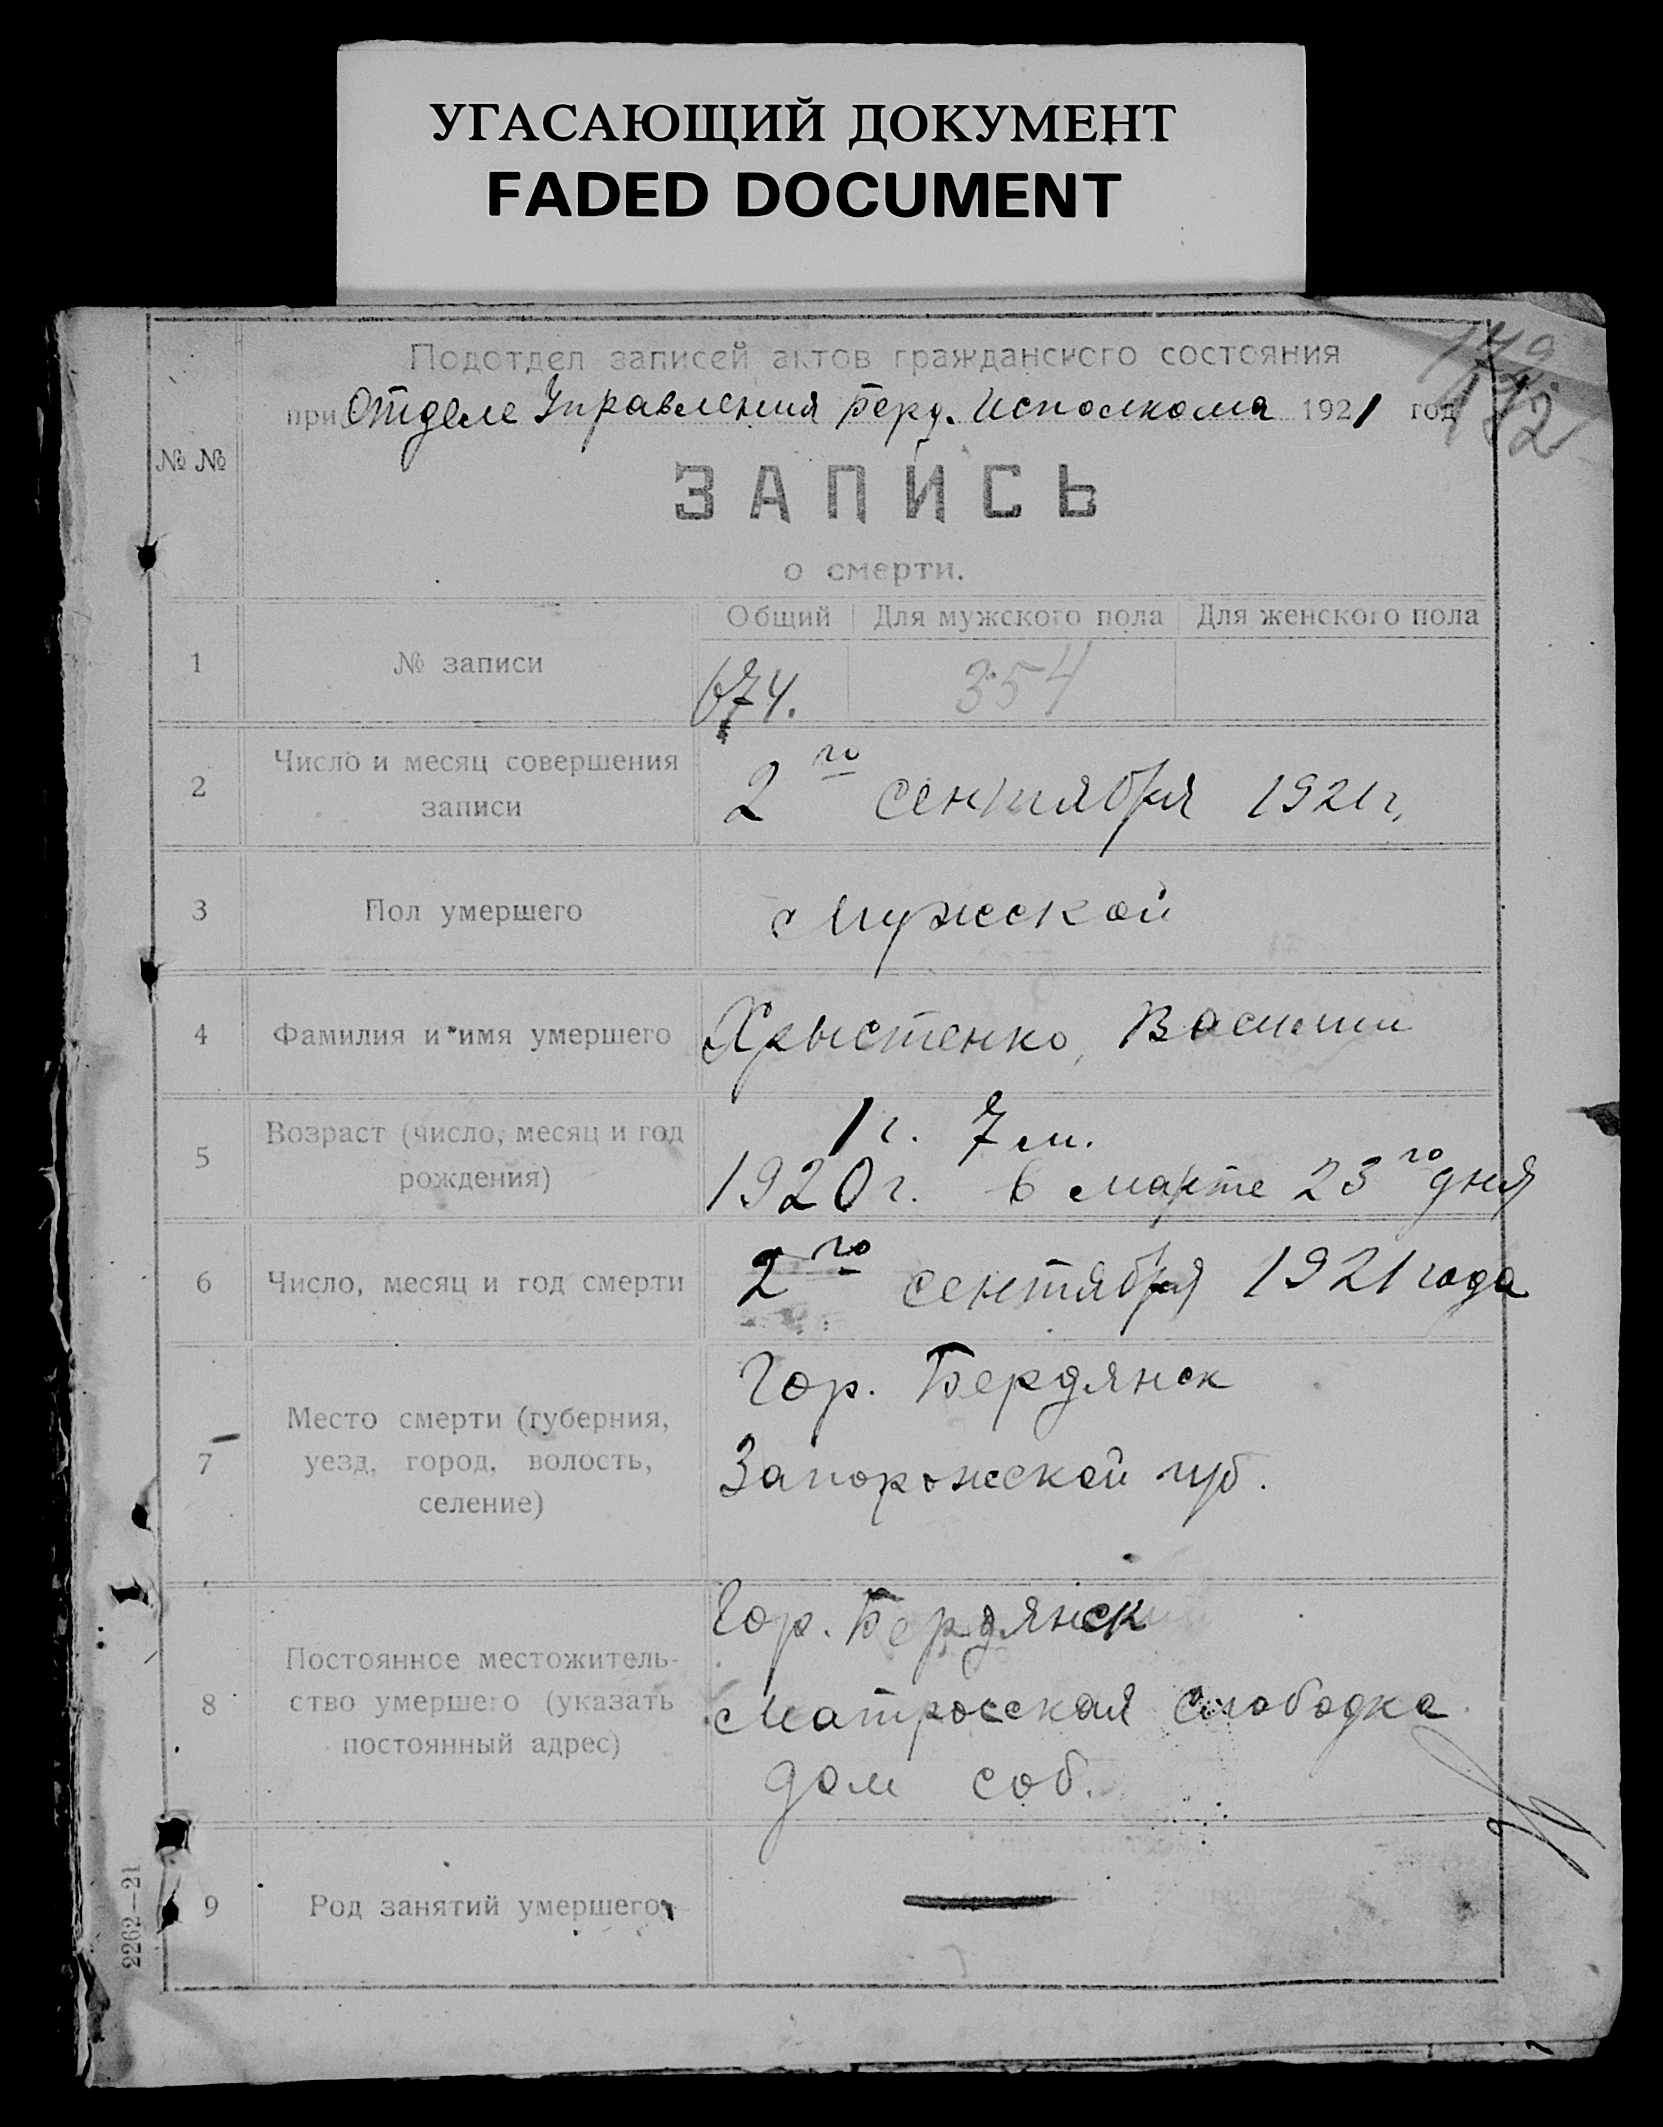 УГАСАЮЩИЙ ДОКУМЕНТ
FADED DOCUMENT
Подотдел записей актов гражданского состояния
при Отделе Управления Берд. Исполкома 1921 год
№ №
ЗАПИСЬ
о смерти.
Общий Для мужского пола Для женского пола
1 № записи 674. 354
2 Число и месяц совершения
записи
2го сентября 1921 г.
3 Пол умершего Мужеской
4 Фамилия и имя умершего Хрыстенко, Василий
5 Возраст (число, месяц и год
рождения)
1 г. 7 м.
1920 г. в марте 23го дня
6 Число, месяц и год смерти 2го сентября 1921 года
7 Место смерти (губерния,
уезд, город, волость,
селение)
Гор. Бердянск
Запорожской губ.
8 Постоянное местожитель-
ство умершего (указать
постоянный адрес)
Гор. Бердянск
Матросская Слободка
дом соб.
9 Род занятий умершего —
2262—21